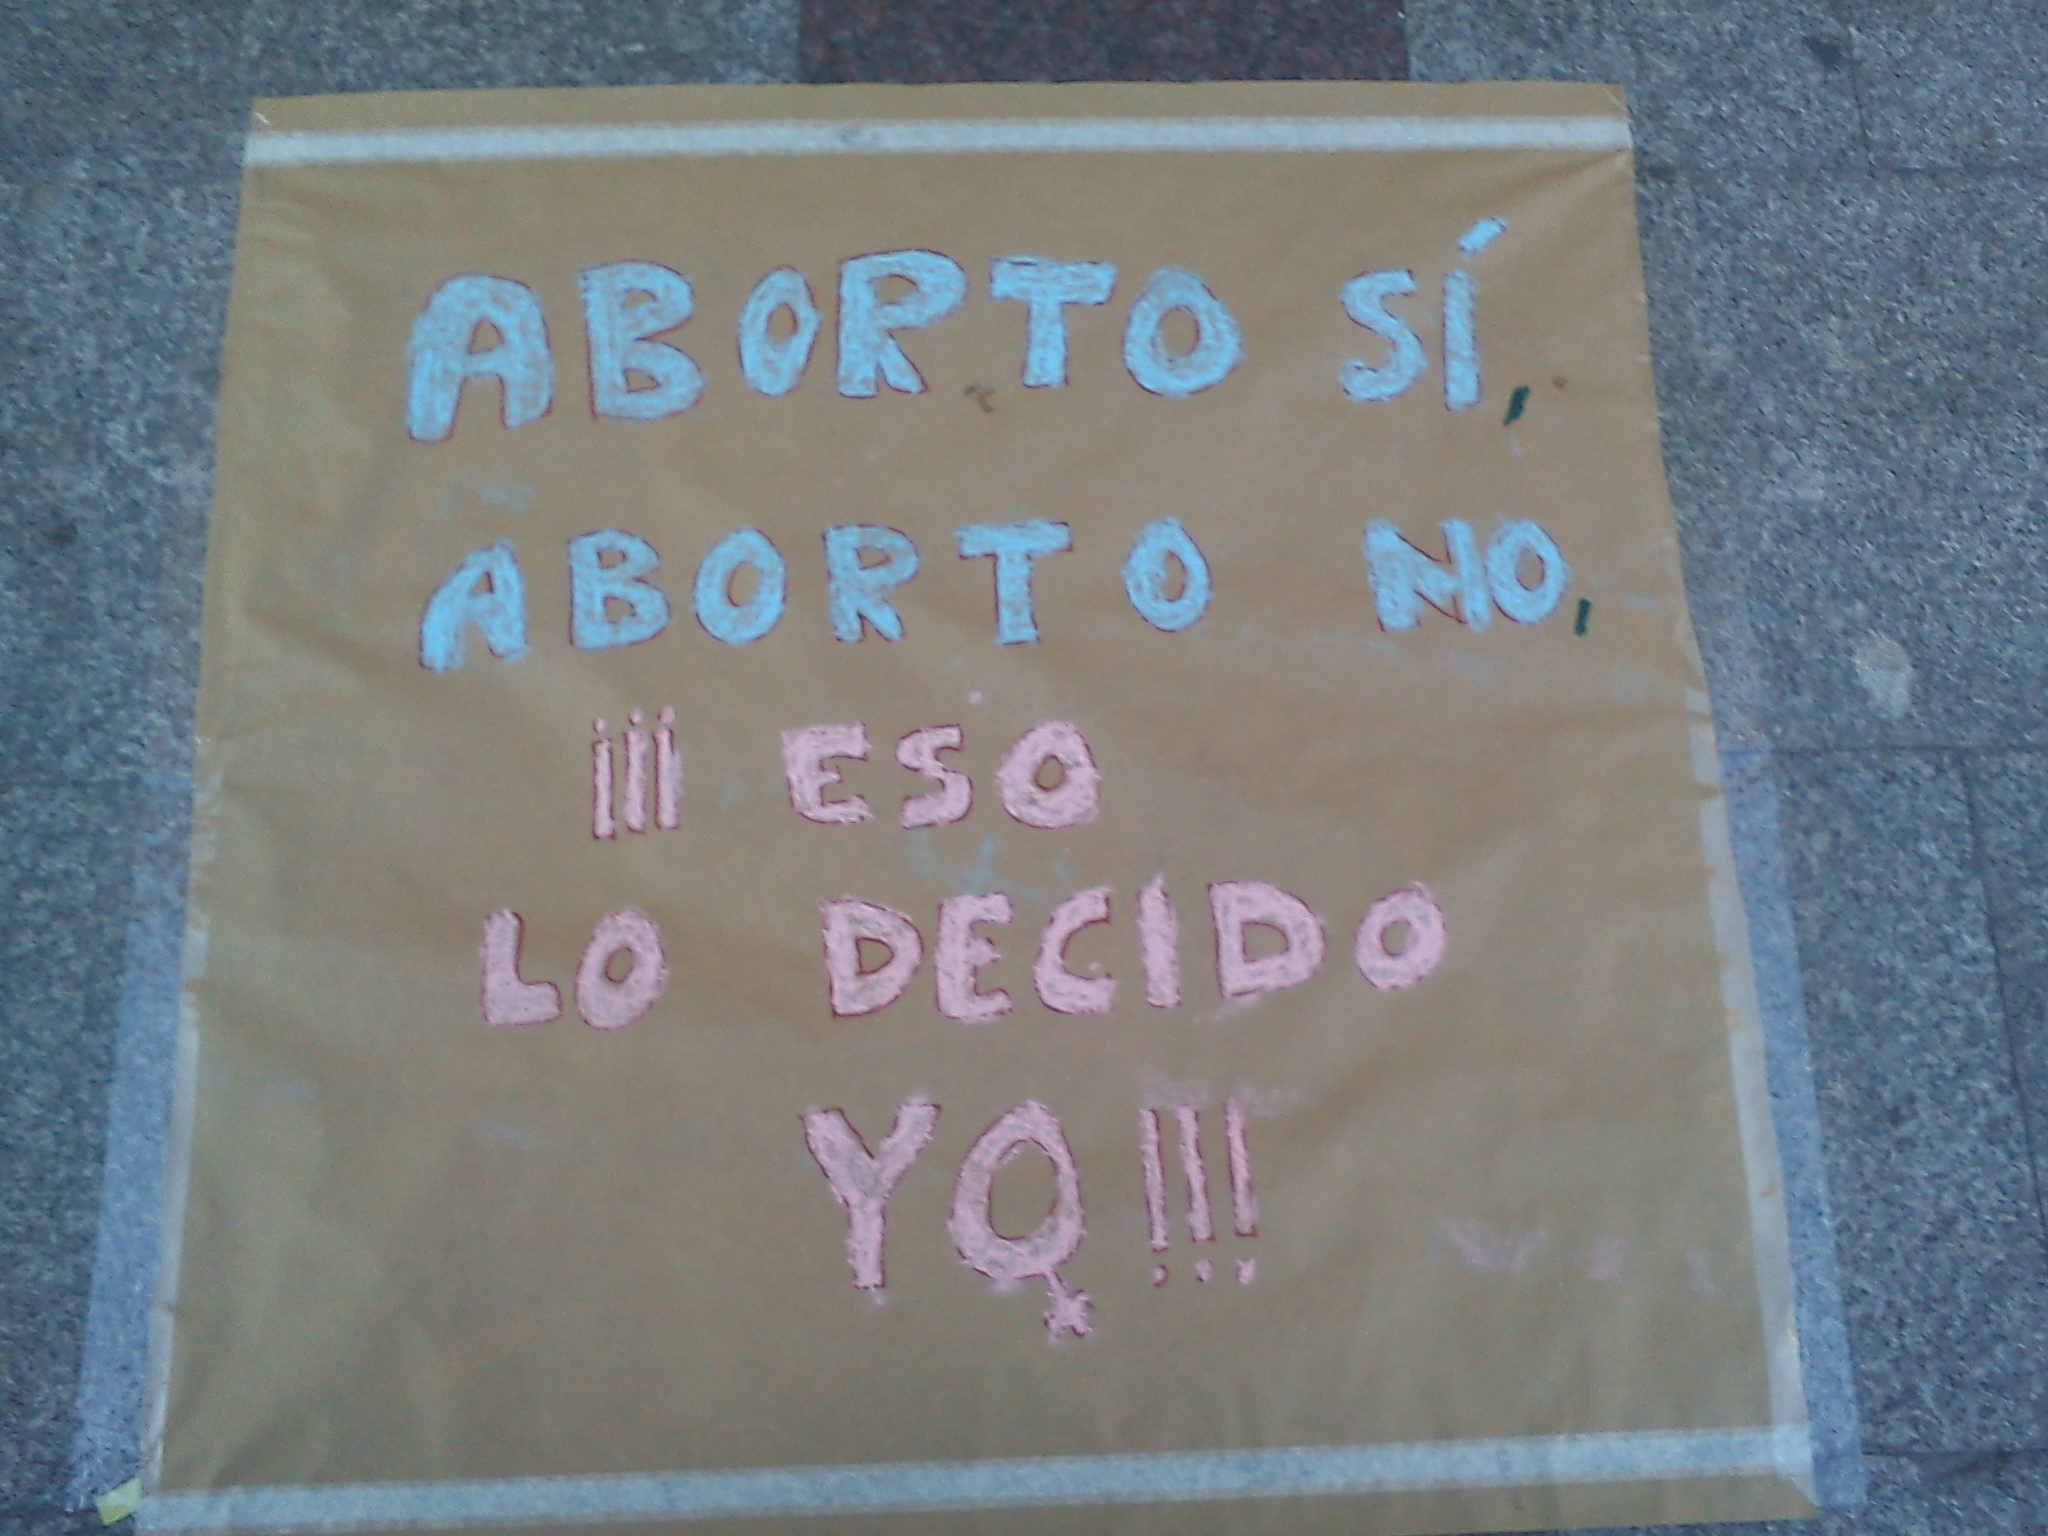 ABORTO SÍ,
ABORTO NO,
¡¡¡ ESO
LO DECIDO
YO!!!